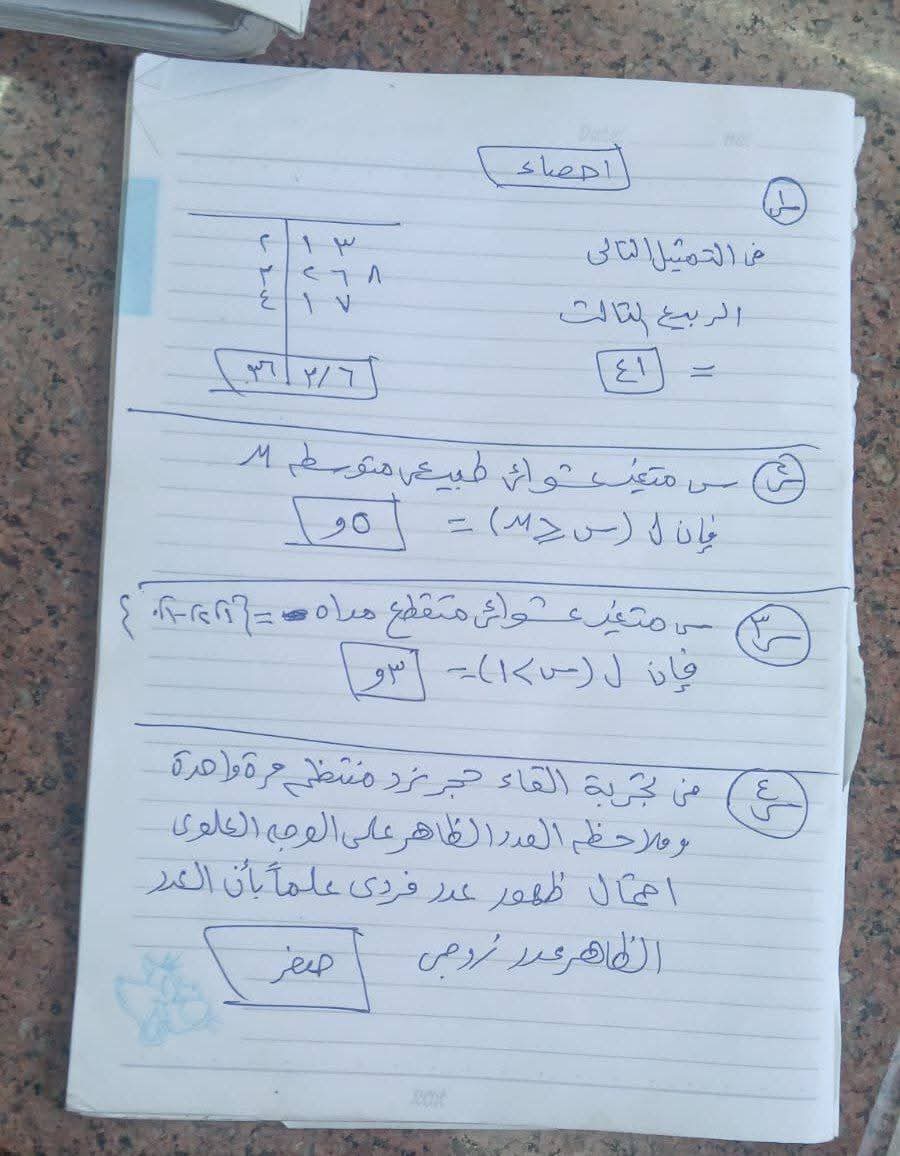 احصاء
س١
فى التمثيل التالى
الربيع الثالث
= ٤١
٢ | ١ ٣
٣ | ٢ ٦ ٨
٤ | ١ ٧
٣٦ | ٣/٦
س٢ س متغير عشوائى طبيعى متوسطه μ
فإن ل (س ≥ μ) = ٥و
س٣ س متغير عشوائى متقطع مداه = {
فإن ل (س > ١) = ٣و
س٤ فى تجربة القاء حجر نرد منتظم مرة واحدة
وملاحظة العدد الظاهر على الوجه العلوى
احتمال ظهور عدد فردى علماً بأن العدد
الظاهر عدد زوجى صفر